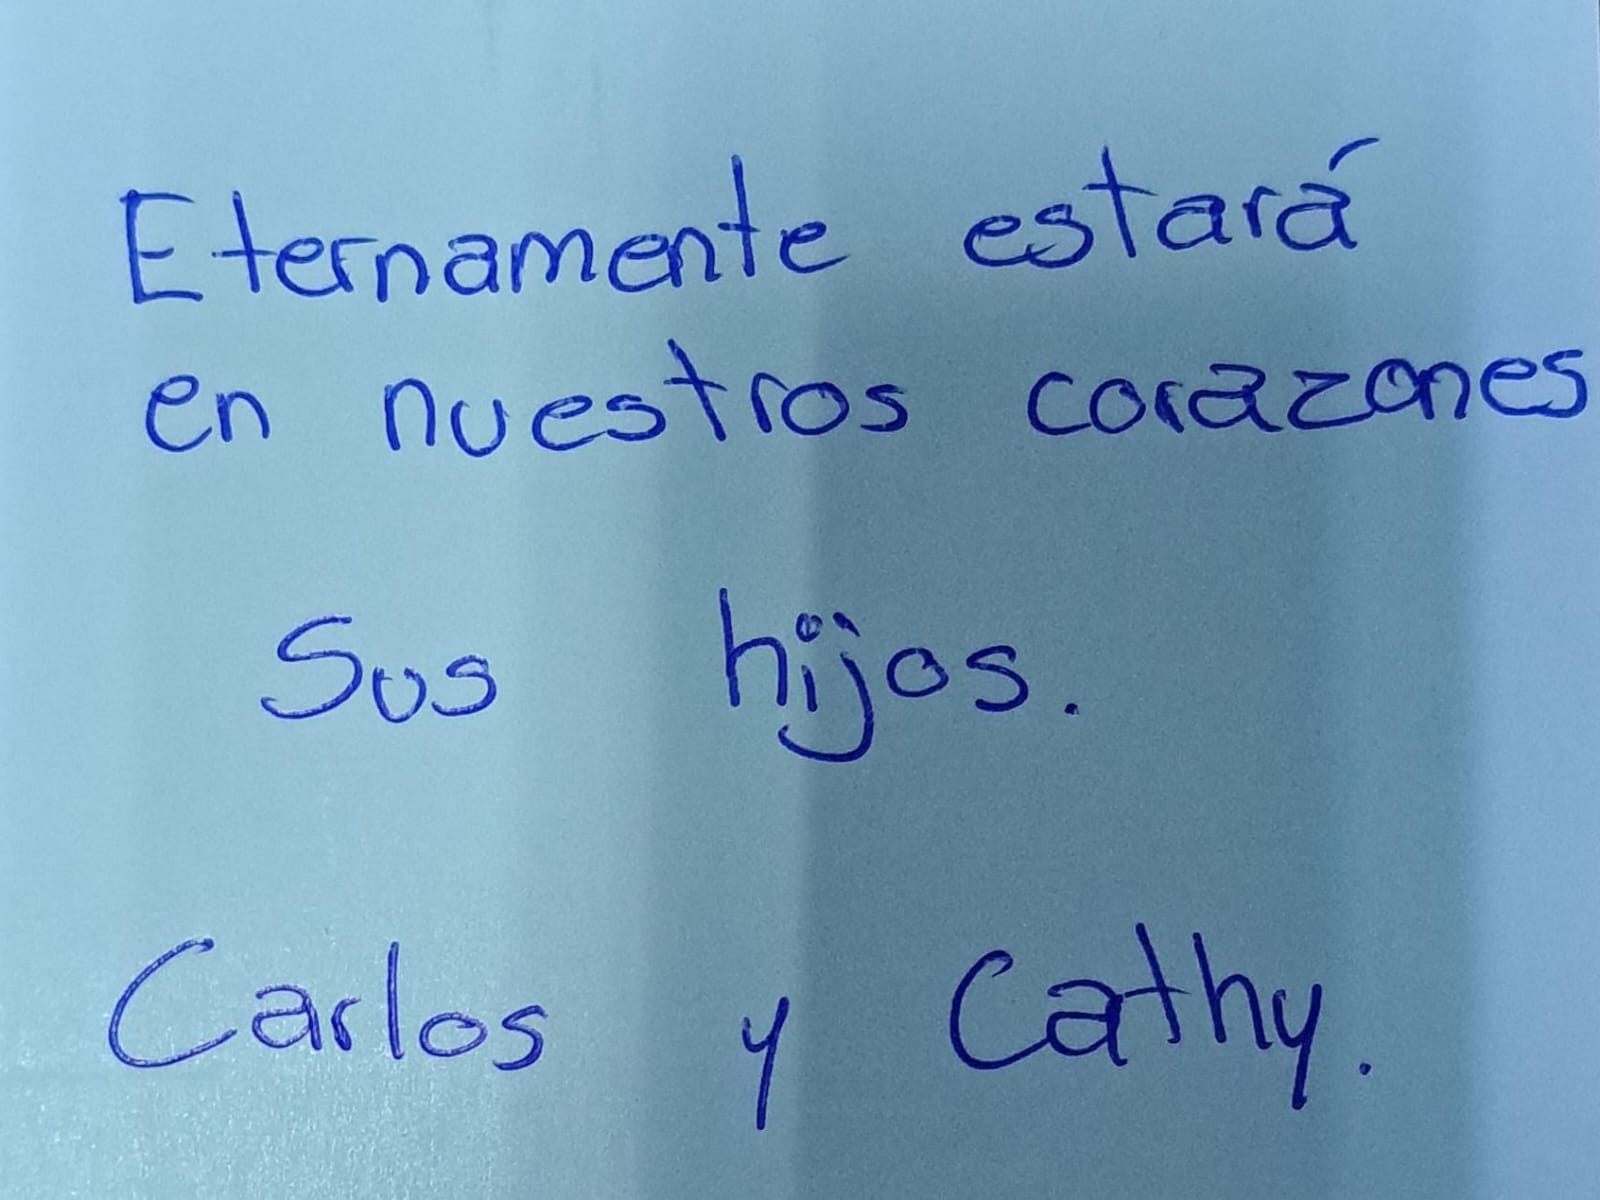 Eternamente estará
en nuestros corazones
Sus hijos.
Carlos y Cathy.